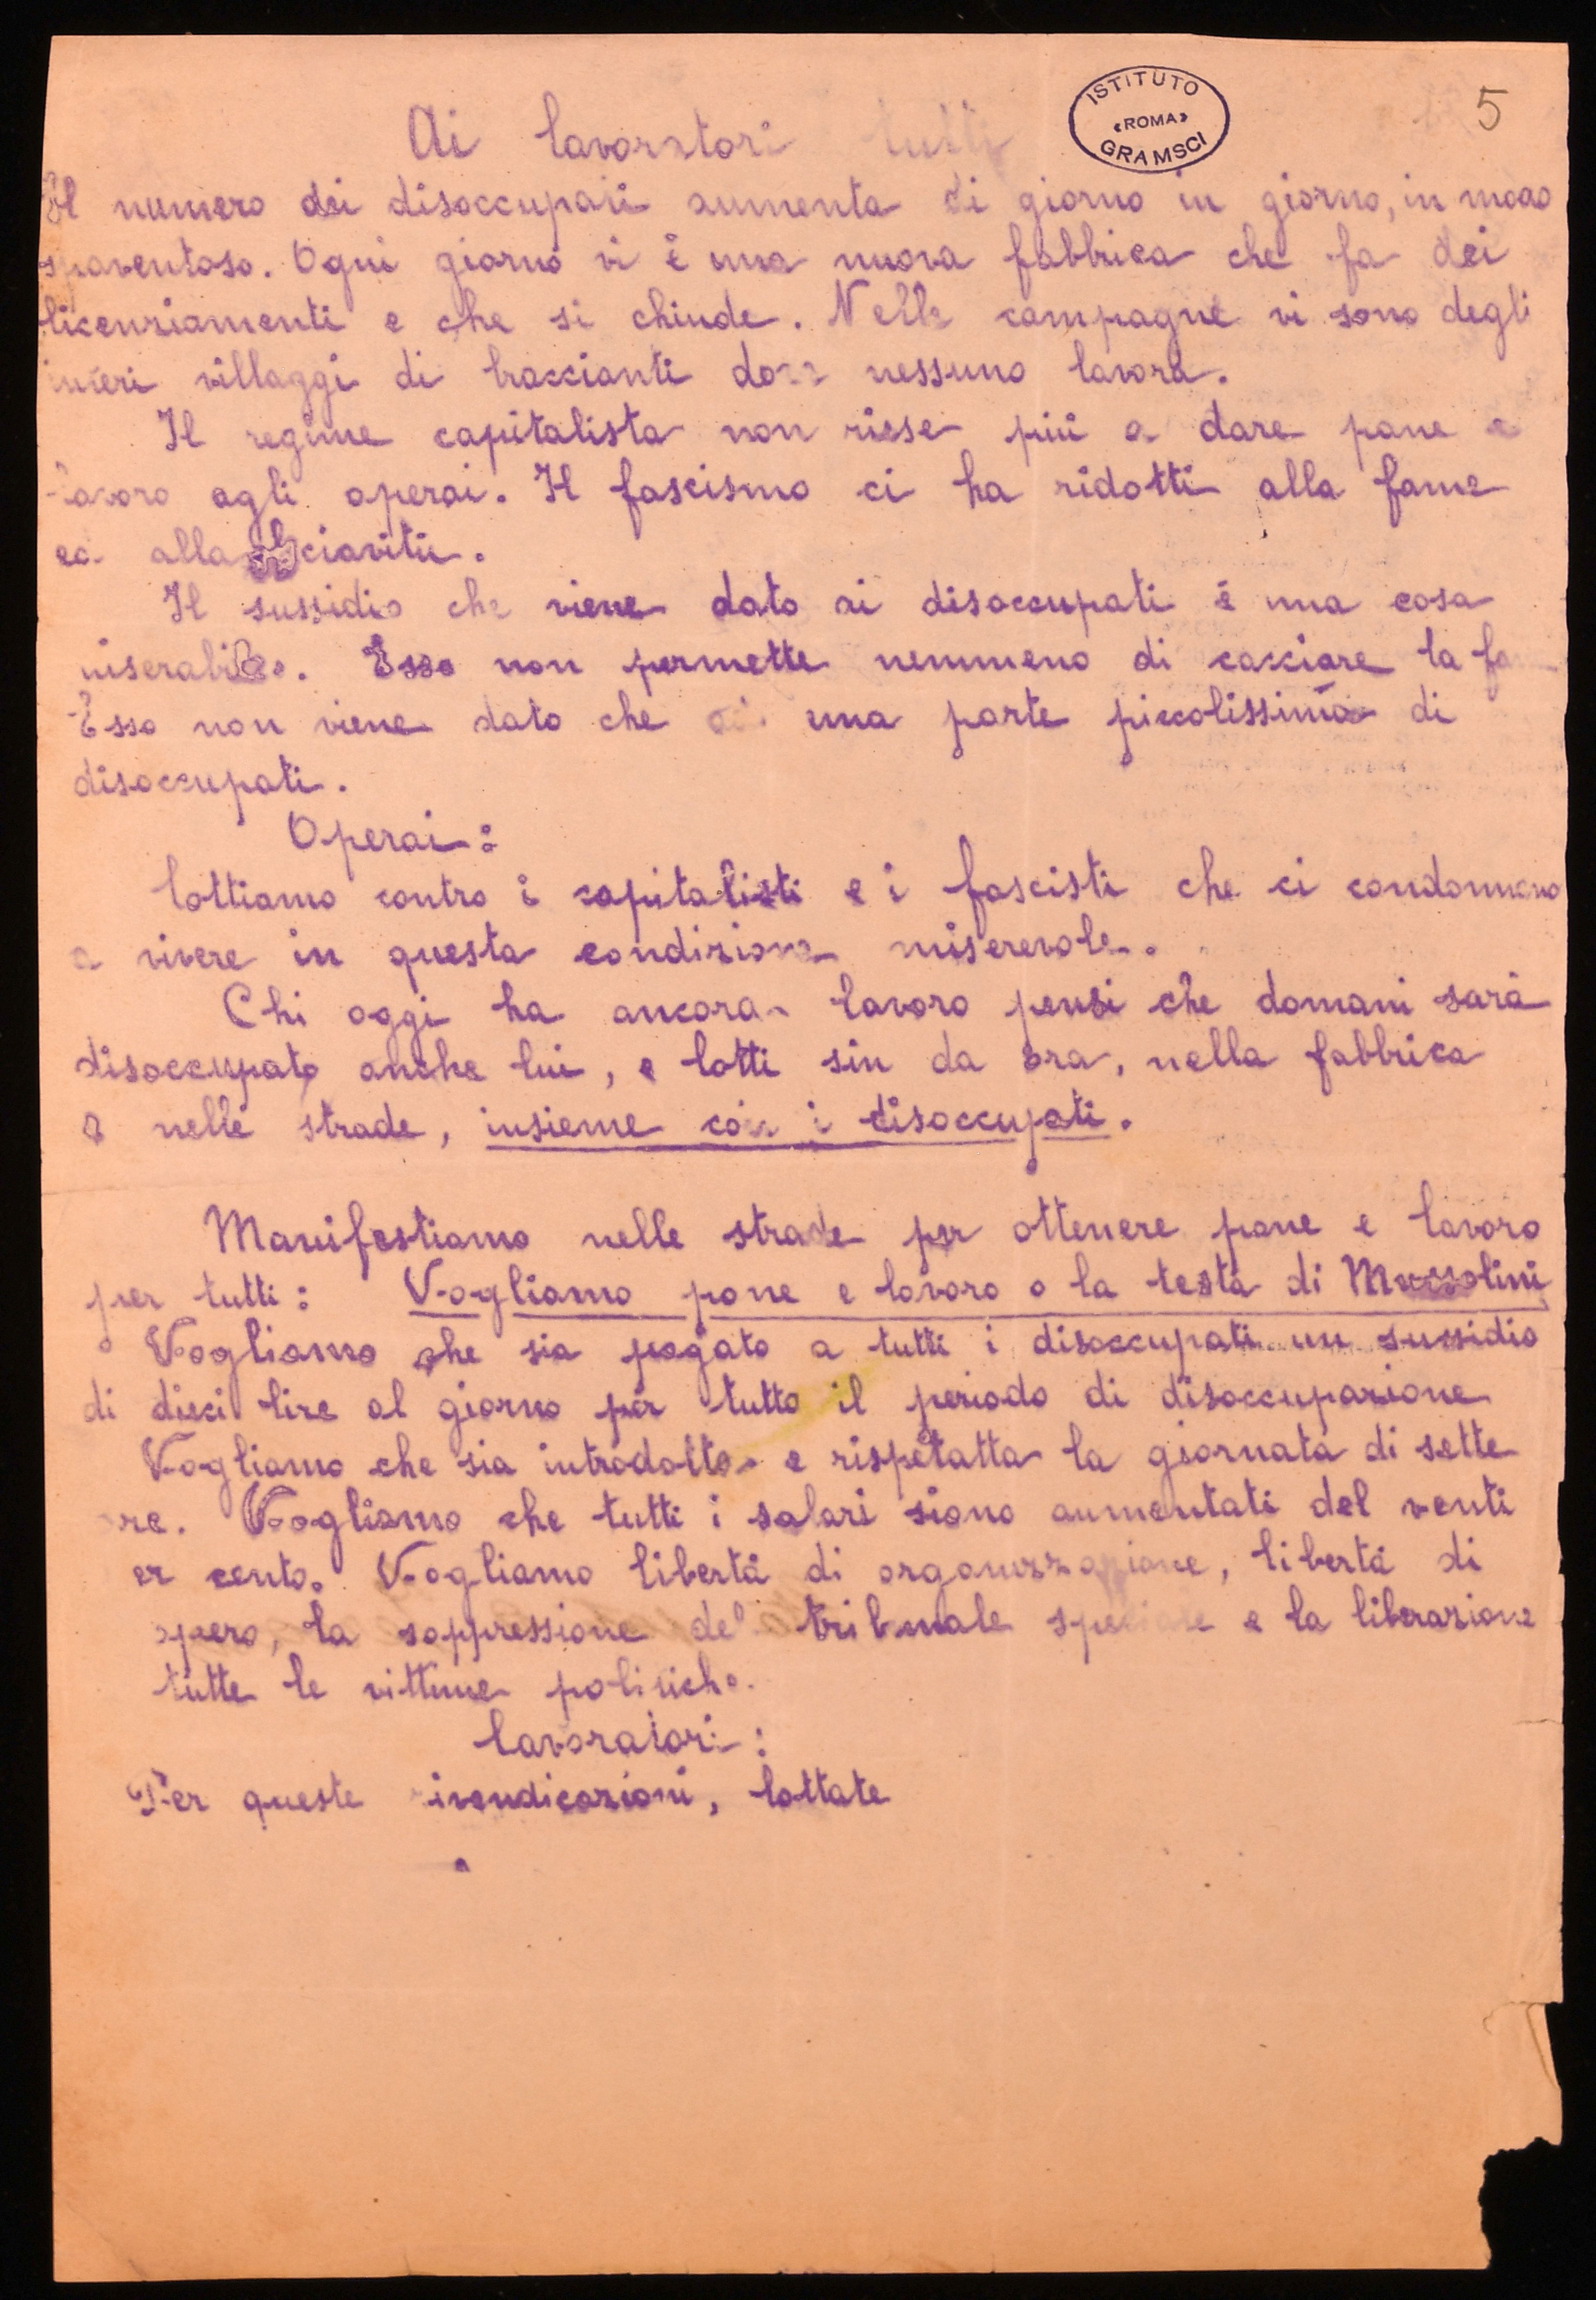 Ai lavoratori tutti
ISTITUTO
«ROMA»
GRAMSCI
5
Il numero dei disoccupati aumenta di giorno in giorno, in modo
spaventoso. Ogni giorno vi è una nuova fabbrica che fa dei
licenziamenti e che si chiude. Nelle campagne vi sono degli
interi villaggi di braccianti dove nessuno lavora.
Il regime capitalista non riesce più a dare pane e
lavoro agli operai. Il fascismo ci ha ridotti alla fame
ed alla schiavitù.
Il sussidio che viene dato ai disoccupati è una cosa
miserabile. Esso non permette nemmeno di cacciare la
Esso non viene dato che ad una parte piccolissima di
disoccupati.
Operai:
lottiamo contro i capitalisti e i fascisti che ci condannano
a vivere in questa condizione miserevole.
Chi oggi ha ancora lavoro pensi che domani sarà
disoccupato anche lui, e lotti sin da ora, nella fabbrica
e nelle strade, insieme con i disoccupati.
Manifestiamo nelle strade per ottenere pane e lavoro
per tutti: Vogliamo pane e lavoro o la testa di Mussolini
Vogliamo che sia pagato a tutti i disoccupati un sussidio
di dieci lire al giorno per tutto il periodo di disoccupazione
Vogliamo che sia introdotto e rispetatta la giornata di sette
re. Vogliamo che tutti i salari siano aumentati del venti
er cento. Vogliamo libertà di organizzazione, libertà di
opero, la soppressione del tribunale speciale e la liberazione
tutte le vittime politiche.
lavoratori:
Per queste rivendicazioni, lottate